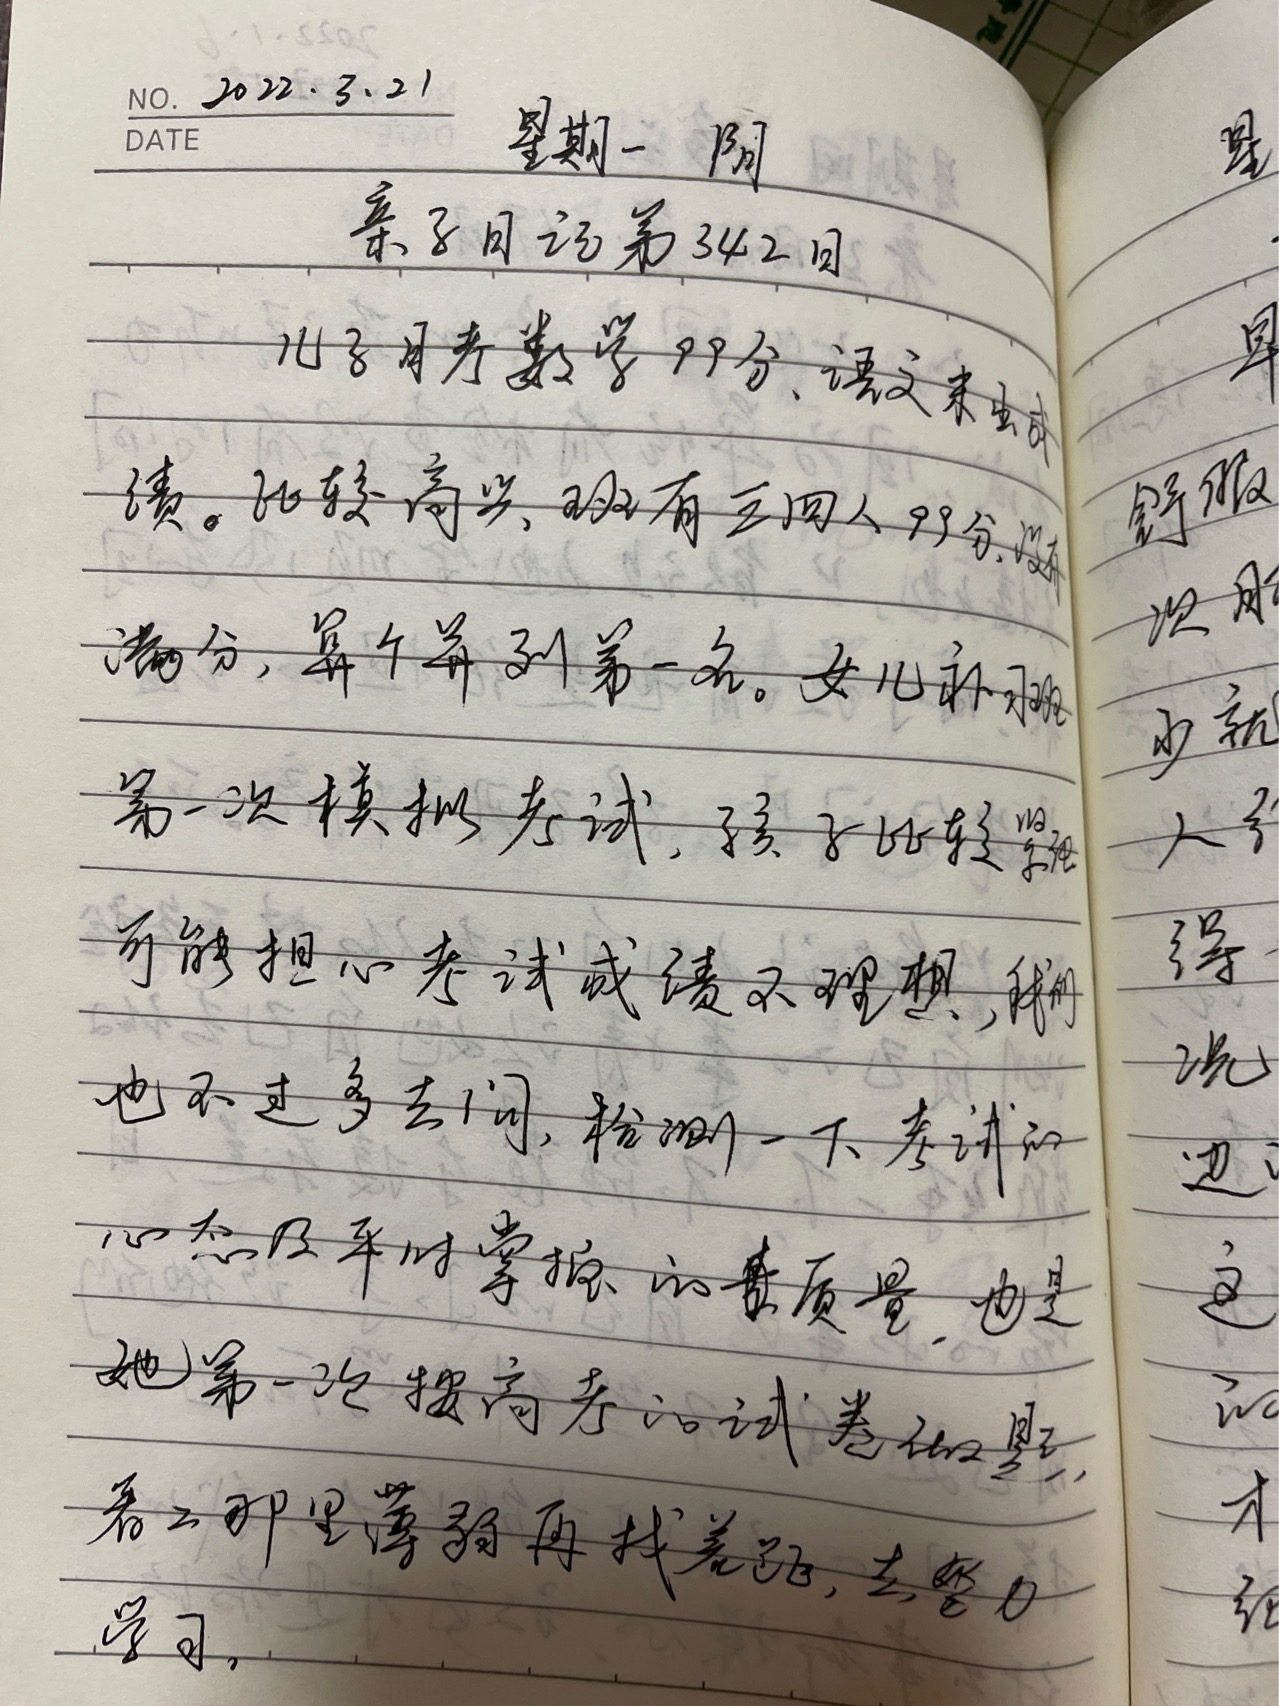 NO. 2022.3.21
DATE
星期一 阴
亲子日记第342日
儿子月考数学99分、语文未出成
绩。比较高兴、班有三四人99分、没有
满分，算个并列第一名。女儿补习班
第一次模拟考试，孩子比较紧张
可能担心考试成绩不理想，我们
也不过多去问，检测一下考试的
心态及平时掌握的质量，也是
她第一次按高考的试卷做题，
看看那里薄弱再找差距，去努力
学习。
星
早
舒服
次月
少就
人
得
况
边
这
的
才